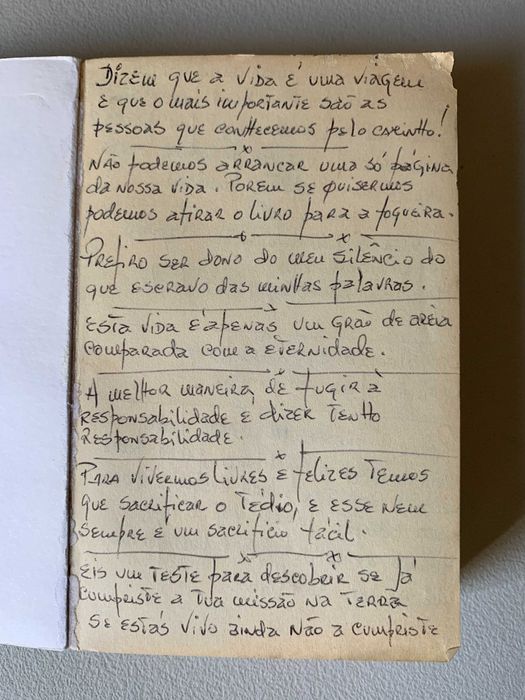 Dizem que a vida é uma viagem
e que o mais importante são as
pessoas que conhecemos pelo caminho!
Não podemos arrancar uma só página
da nossa vida. Porém se quisermos
podemos atirar o livro para a fogueira.
Prefiro ser dono do meu silêncio do
que escravo das minhas palavras.
Esta vida é apenas um grão de areia
comparada com a eternidade.
A melhor maneira de fugir à
responsabilidade e dizer tenho
responsabilidade.
Para vivermos livres e felizes temos
que sacrificar o tédio, e esse nem
sempre é um sacrifício fácil.
Eis um teste para descobrir se já
cumpriste a tua missão na terra
se estás vivo ainda não a cumpriste